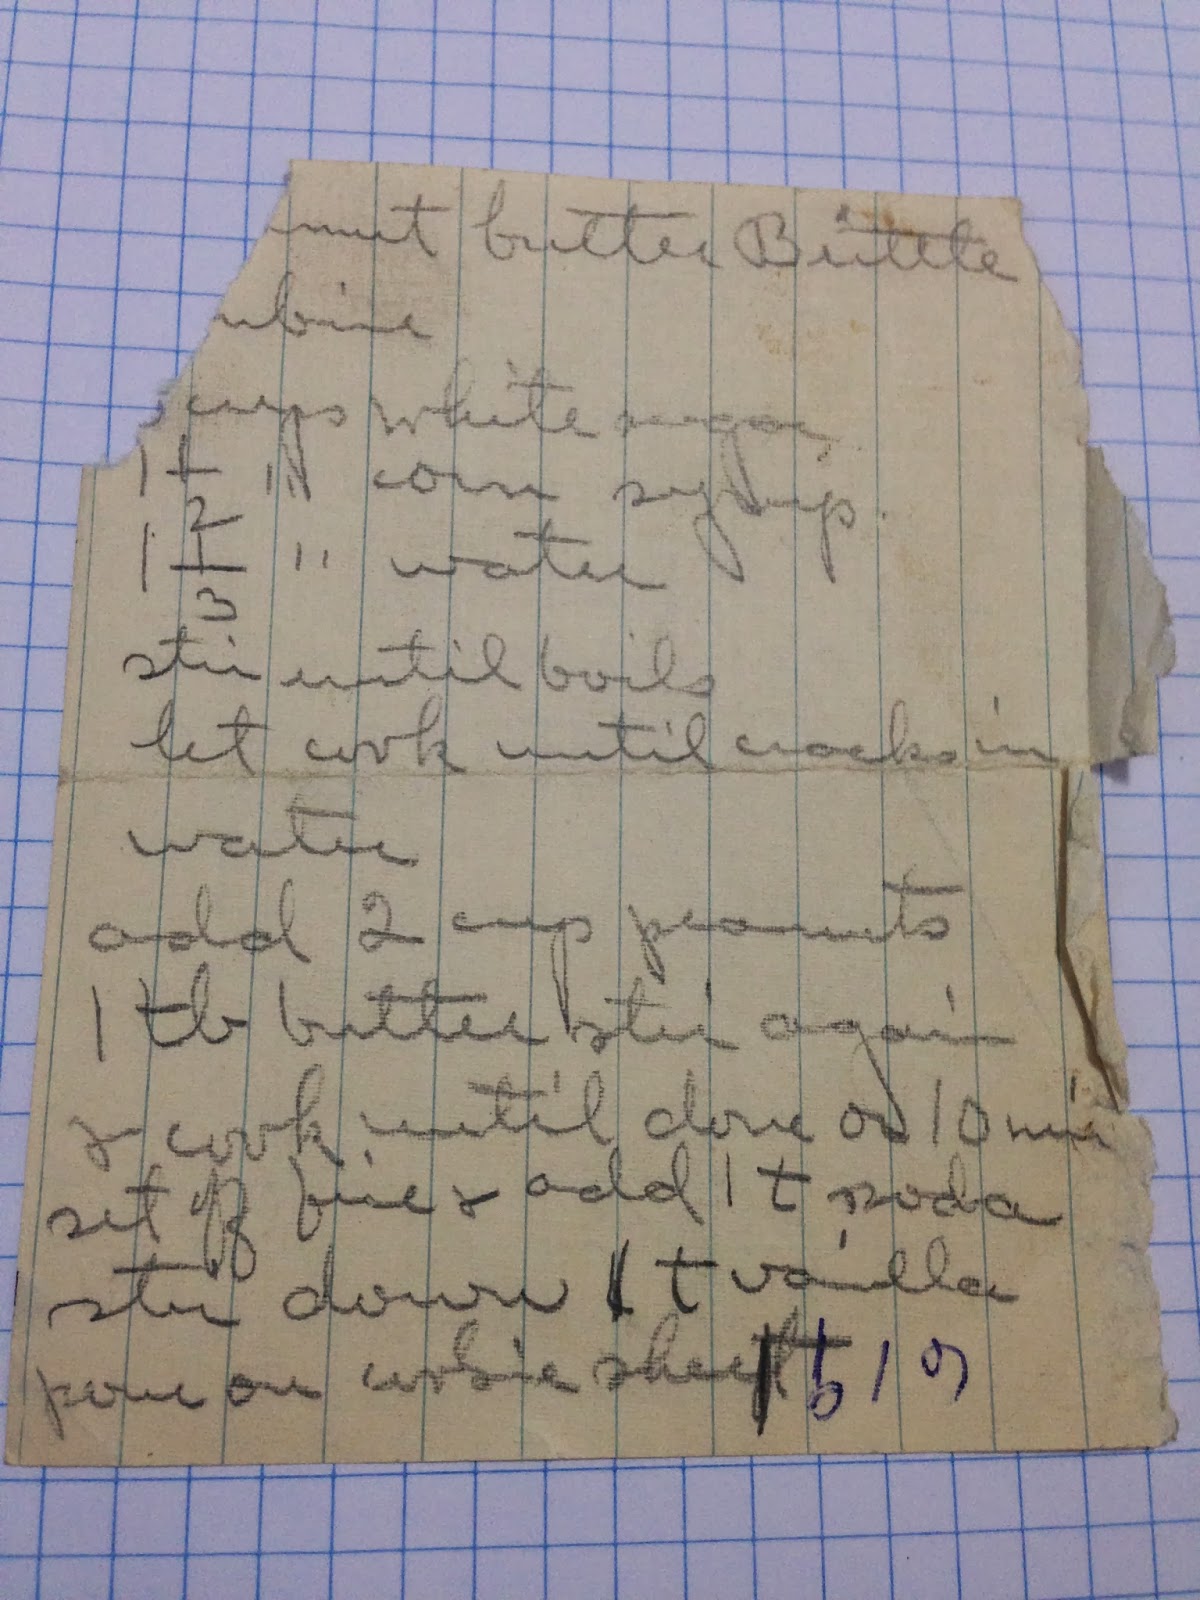 nut butter Brittle
mbine
cups white sugar
1 1/2 " corn syrup.
1 1/3 " water
stir until boils
let cook until cracks in
water
add 2 cup peanuts
1 tb butter stir again
& cook until done or 10 min
set off fire & add 1 t soda
stir down 1 t vanilla
pour on cookie sheet